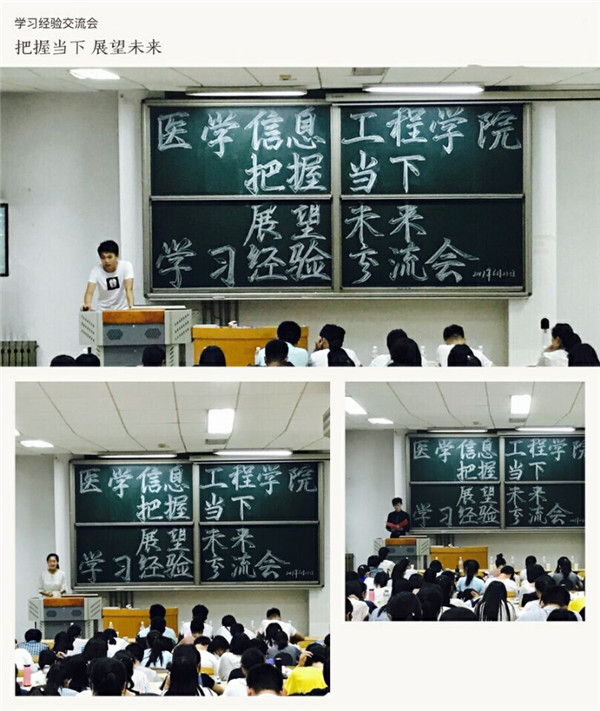 学习经验交流会
把握当下 展望未来
医学信息 工程学院
把握 当下
展望 未来
学习经验 交流会
医学信息 工程学院
把握 当下
展望 未来
学习经验 交流会
医学信息 工程学院
把握 当下
展望 未来
学习经验 交流会